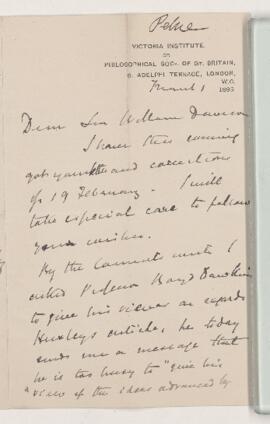 VICTORIA INSTITUTE,
OR
PHILOSOPHICAL SOCY. OF GT. BRITAIN,
8, ADELPHI TERRACE, LONDON,
W.C.
March 1 1893
Dear Sir William Dawson
I have this evening
got your and corrections
of 19 February. I will
take especial care to follow
your wishes.
By the Comments wrote I
asked Professor Boyd Dawkins
to give his views as regards
Huxley's article, he today
sends me a message that
he is too busy to "give his
"view of the ideas advanced by